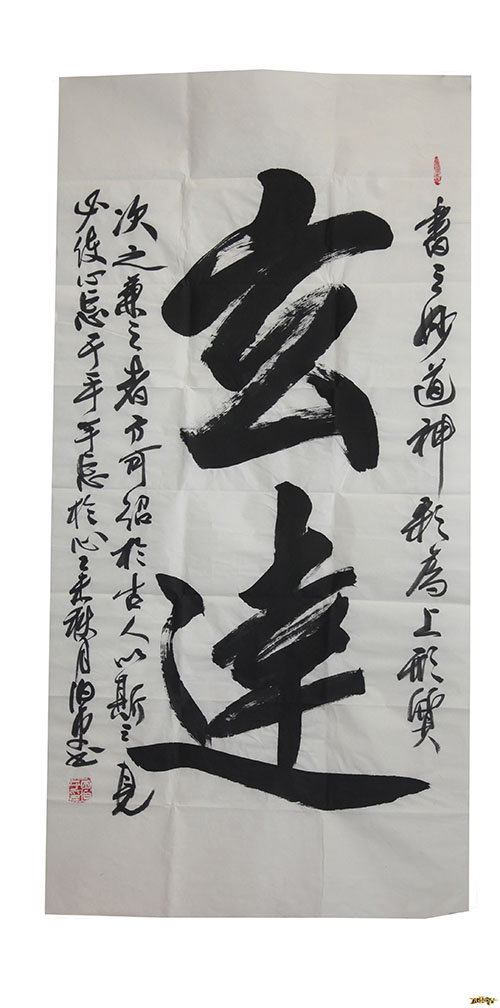 書之妙道神彩為上形質
玄達
次之兼之者方可紹於古人以斯之見
必使心忘于手手忘於心乙未秋月